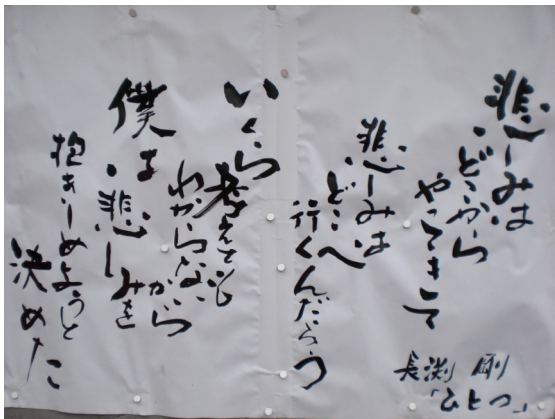 悲しみは
どこから
やってきて
悲しみは
どこへ
行くんだろう
いくら
考えても
わからないから
僕は
悲しみを
抱きしめようと
決めた
長渕 剛
「ひとつ」